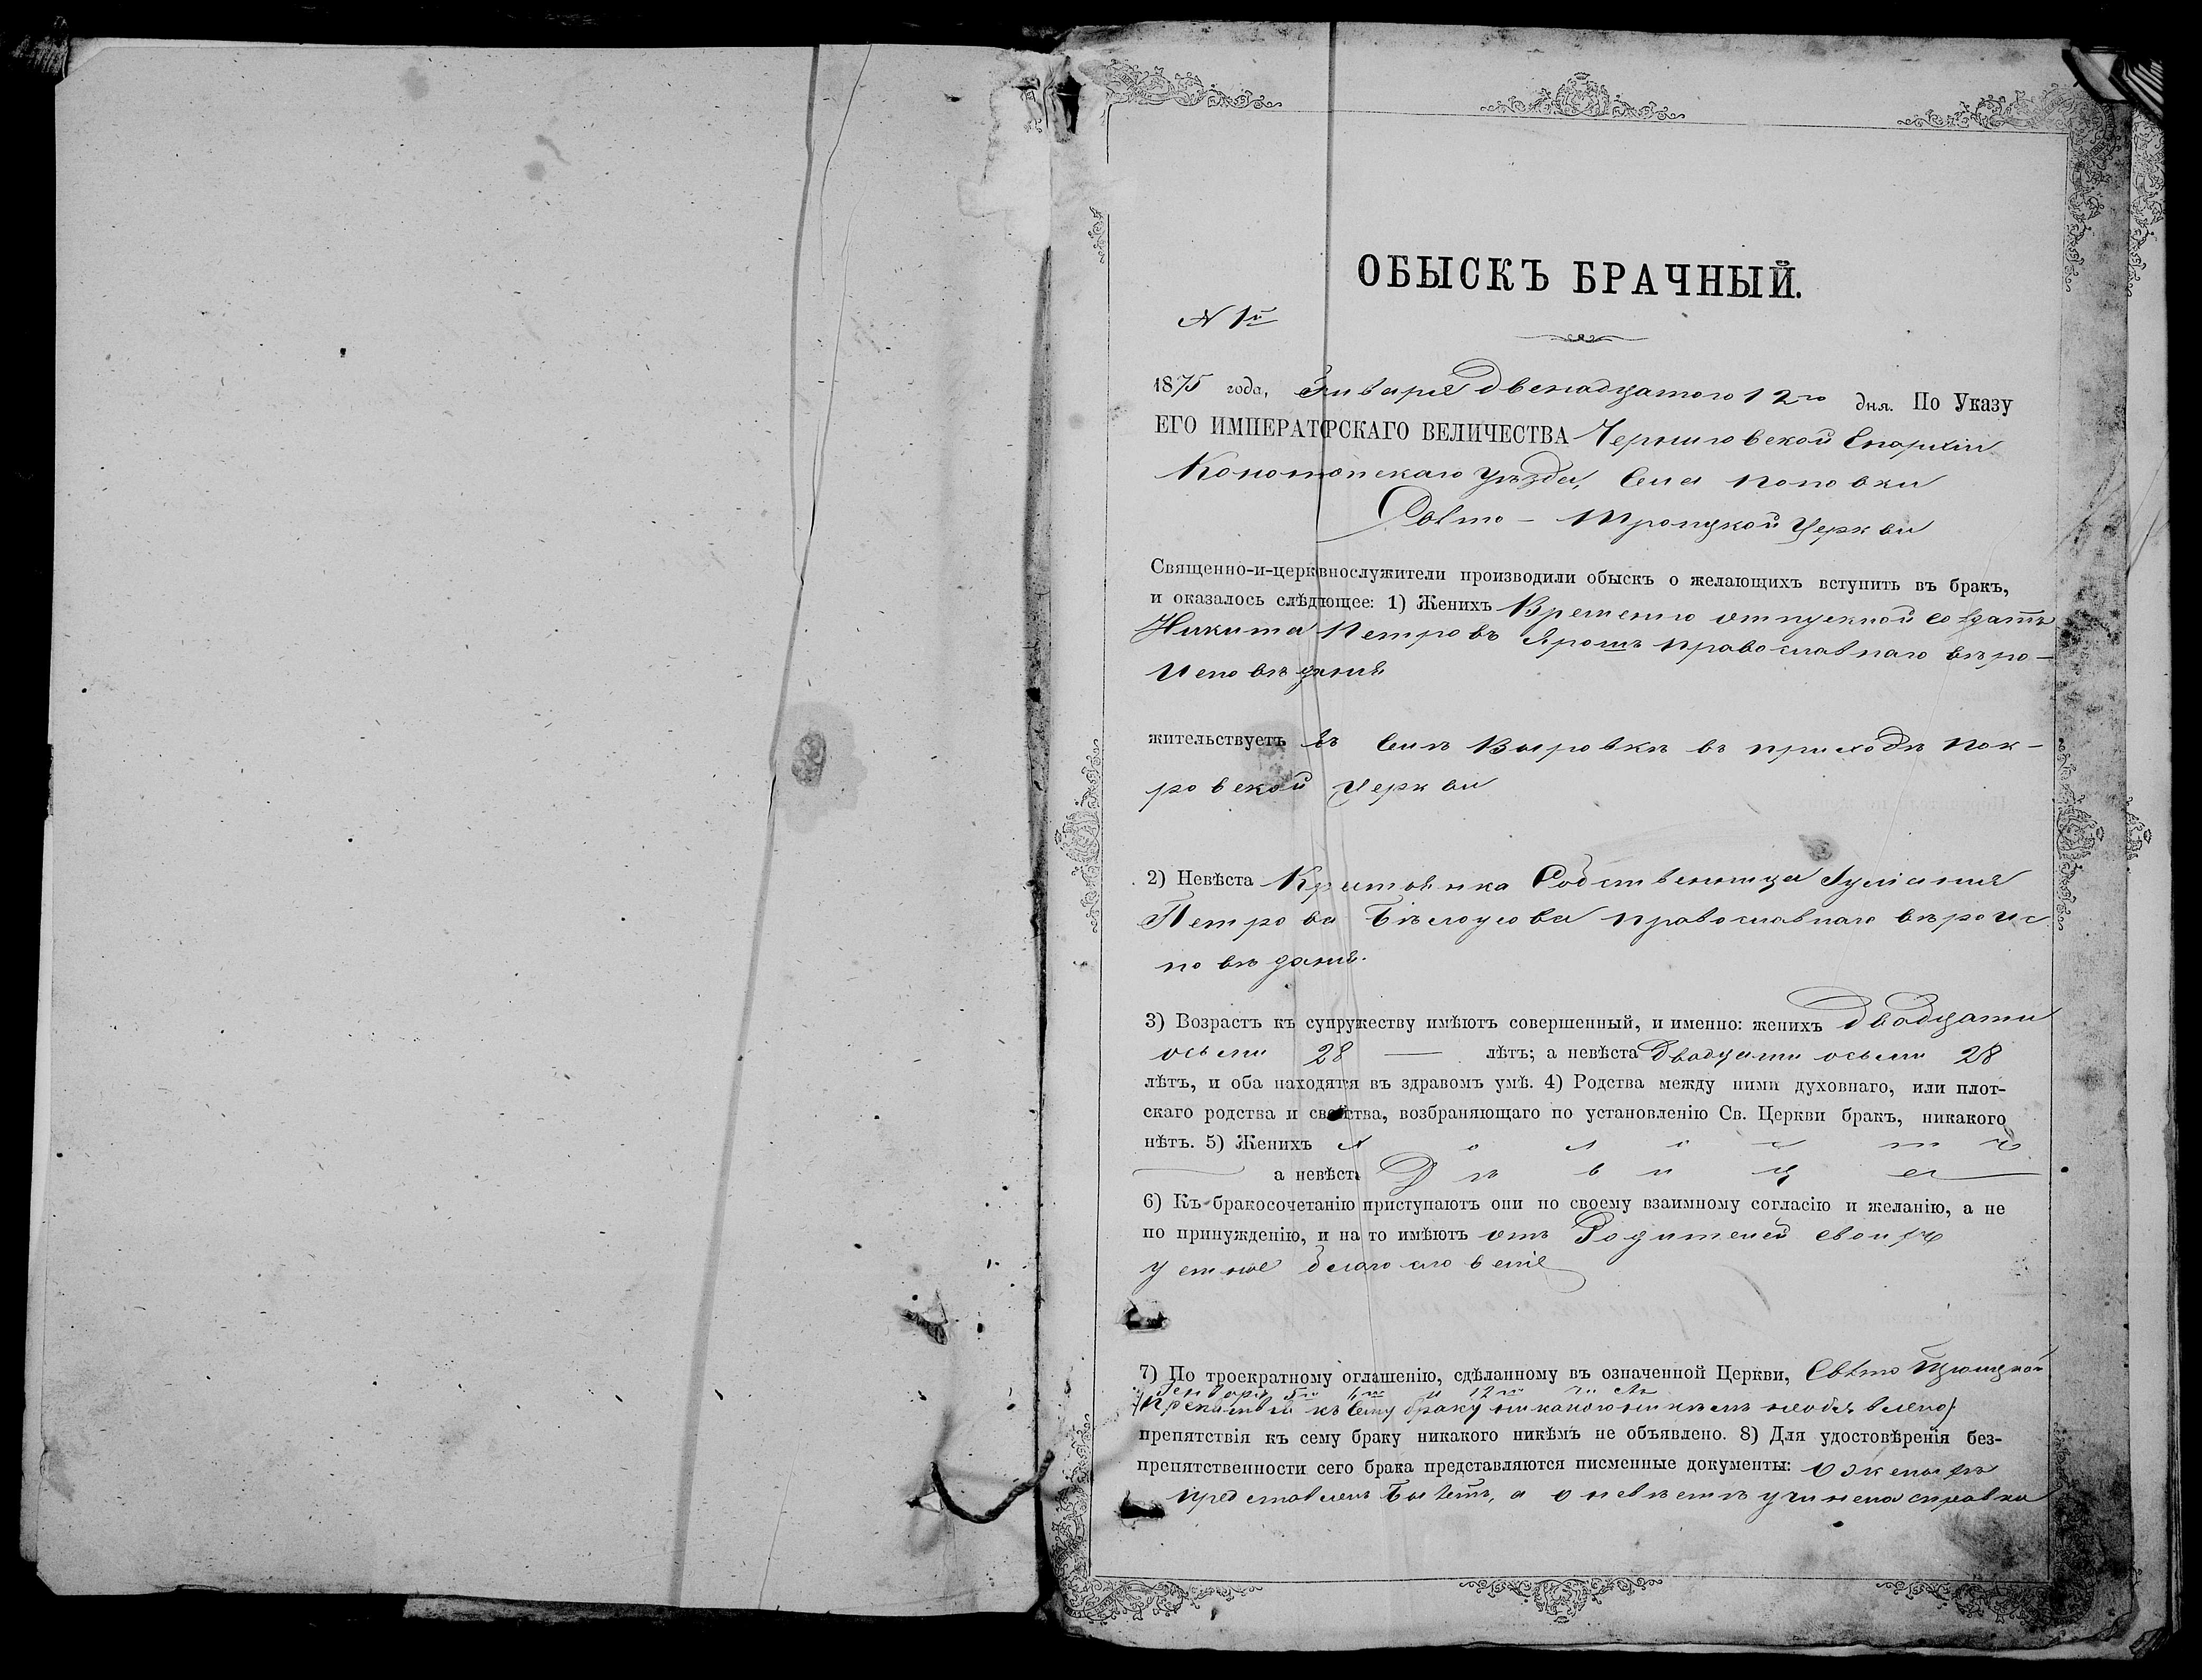 ОБЫСКЪ БРАЧНЫЙ.
N 1й
1875 года, Января двенадцатого 12го дня. По Указу
ЕГО ИМПЕРАТОРСКАГО ВЕЛИЧЕСТВА Черниговской Епархіи
Конотопскаго уѣзда, Села Поповки
Свято - Троицкой Церкви
Священно-и-церковнослужители производили обыскъ о желающихъ вступить въ бракъ,
и оказалось слѣдющее: 1) Женихъ Временно отпускной солдатъ
Никита Петровъ Ярошъ православнаго вѣро-
исповѣданія
жительствуетъ въ Селѣ Выровкѣ въ приходѣ Пок-
ровской Церкви
2) Невѣста Родственница Іуліанія
Петрова Бѣлоусова православнаго вѣроис
повѣданія.
3) Возрастъ къ супружеству имѣютъ совершенный, и именно: женихъ двадцати
осьми 28 — лѣтъ; а невѣста двадцати осьми 28
лѣтъ, и оба находятся въ здравомъ умѣ. 4) Родства между ними духовнаго, или плот-
скаго родства и свойства, возбраняющаго по установленію Св. Церкви бракъ, никакого
нѣтъ. 5) Женихъ холостъ
а невѣста Дѣвица
6) Къ бракосочетанію приступаютъ они по своему взаимному согласію и желанію, а не
по принужденію, и на то имѣютъ отъ Родителей своихъ
устное благословеніе
7) По троекратному оглашенію, сдѣланному въ означенной Церкви, Свято Троицкой
Генваря 5го 6го и 12го числъ
къ сему браку никакого никѣмъ необъявлено
препятствія къ сему браку никакого никѣмъ не объявлено. 8) Для удостовѣренія без-
препятственности сего брака представляются писменные документы: о женихѣ
представленъ билетъ, а о невѣстѣ учинена справка